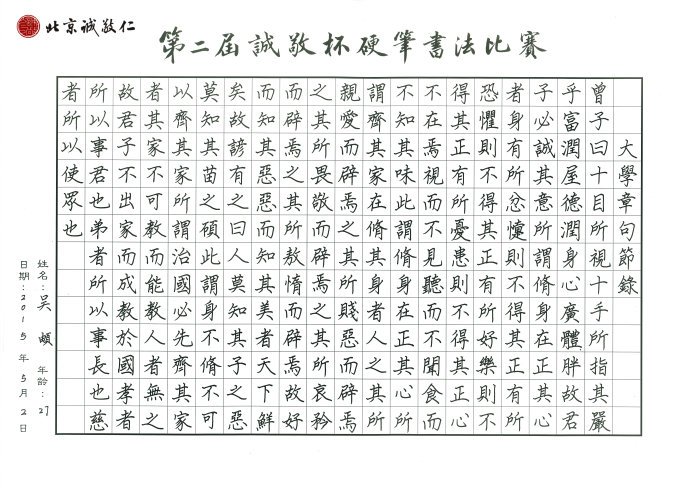 北京誠敬仁
第二屆誠敬杯硬筆書法比賽
大學章句節錄
曾子曰十目所視十手所指其嚴
乎富潤屋德潤身心廣體胖故君
子必誠其意所謂脩身在正其心
者身有所忿懥則不得其正有所
恐懼則不得其正有所好樂則不
得其正有所憂患則不得其正心
不在焉視而不見聽而不聞食而
不知其味此謂脩身在正其心所
謂齊其家在脩其身者人之其所
親愛而辟焉之其所賤惡而辟焉
之其所畏敬而辟焉之其所哀矜
而辟焉之其所敖惰而辟焉故好
而知其惡惡而知其美者天下鮮
矣故諺有之曰人莫知其子之惡
莫知其苗之碩此謂身不脩不可
以齊其家所謂治國必先齊其家
者其家不可教而能教人者無之
故君子不出家而成教於國孝者
所以事君也弟者所以事長也慈
者所以使眾也
姓名:吴 年齡:27
日期:2015年5月2日